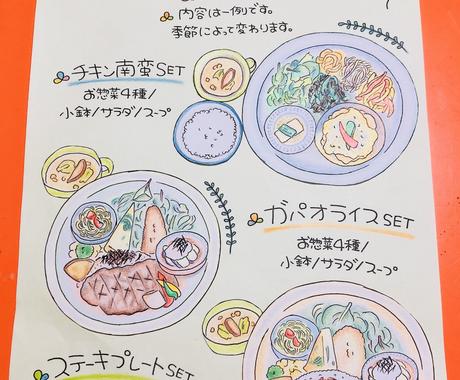 内容は一例です。
季節によって変わります。
チキン南蛮SET
お惣菜4種/
小鉢/サラダ/スープ
ガパオライスSET
お惣菜4種/
小鉢/サラダ/スープ
ステーキプレートSET